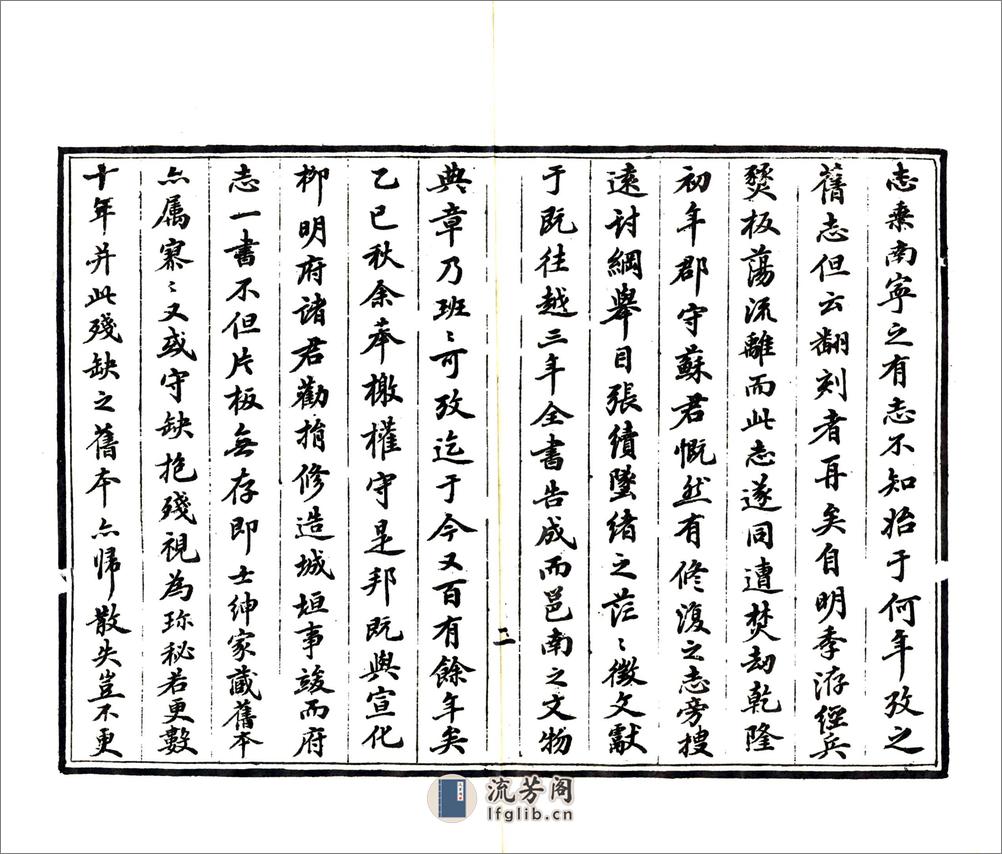 志乘南寧之有志不知始于何年攷之
舊志但云翻刻者再矣自明季洊經兵
燹板蕩流離而此志遂同遭焚劫乾隆
初年郡守蘇君慨然有修復之志旁搜
遠討綱舉目張續墜緒之茫〻徵文獻
于既往越三年全書告成而邕南之文物
二
典章乃班〻可攷迄于今又百有餘年矣
乙巳秋余奉檄權守是邦既與宣化
柳明府諸君勸捐修造城垣事竣而府
志一書不但片板無存即士紳家藏舊本
亦属寥〻又或守缺抱殘視為珍秘若更數
十年并此殘缺之舊本亦歸散失豈不更
流芳阁
lfglib.cn